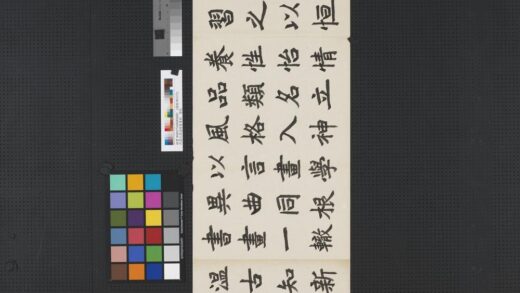 習之以恒
養性怡情
品類名立
風格入神
以言畫學
異曲同根
書畫一轍
溫古知新